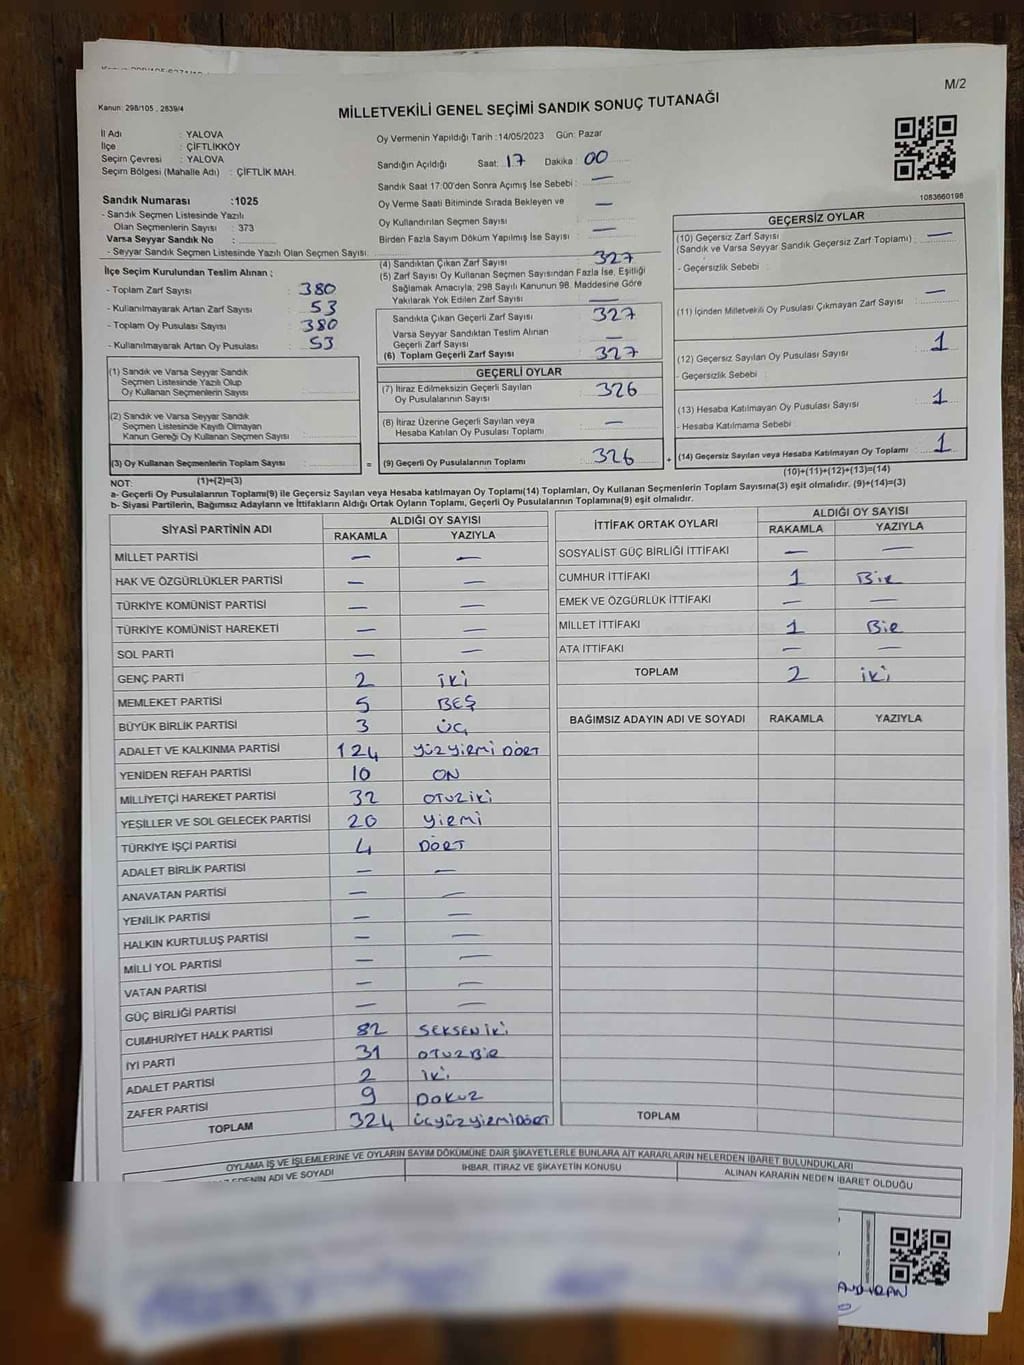 M/2
Kanun: 298/105 , 2839/4
MİLLETVEKİLİ GENEL SEÇİMİ SANDIK SONUÇ TUTANAĞI
İl Adı : YALOVA
İlçe : ÇİFTLİKKÖY
Seçim Çevresi : YALOVA
Seçim Bölgesi (Mahalle Adı) : ÇİFTLİK MAH.
Sandık Numarası :1025
- Sandık Seçmen Listesinde Yazılı
Olan Seçmenlerin Sayısı : 373
Varsa Seyyar Sandık No :
- Seyyar Sandık Seçmen Listesinde Yazılı Olan Seçmen Sayısı:
İlçe Seçim Kurulundan Teslim Alınan ;
- Toplam Zarf Sayısı : 380
- Kullanılmayarak Artan Zarf Sayısı : 53
- Toplam Oy Pusulası Sayısı : 380
- Kullanılmayarak Artan Oy Pusulası : 53
(1) Sandık ve Varsa Seyyar Sandık
Seçmen Listesinde Yazılı Olup
Oy Kullanan Seçmenlerin Sayısı :
(2) Sandık ve Varsa Seyyar Sandık
Seçmen Listesinde Kayıtlı Olmayan
Kanun Gereği Oy Kullanan Seçmen Sayısı :
(3) Oy Kullanan Seçmenlerin Toplam Sayısı :
(1)+(2)=(3)
Oy Vermenin Yapıldığı Tarih :14/05/2023 Gün: Pazar
Sandığın Açıldığı Saat: 17 Dakika : 00
Sandık Saat 17:00'den Sonra Açımış İse Sebebi : —
Oy Verme Saati Bitiminde Sırada Bekleyen ve
Oy Kullandırılan Seçmen Sayısı : —
Birden Fazla Sayım Döküm Yapılmış İse Sayısı : —
(4) Sandıktan Çıkan Zarf Sayısı : 327
(5) Zarf Sayısı Oy Kullanan Seçmen Sayısından Fazla İse, Eşitliği
Sağlamak Amacıyla; 298 Sayılı Kanunun 98. Maddesine Göre
Yakılarak Yok Edilen Zarf Sayısı : —
Sandıkta Çıkan Geçerli Zarf Sayısı : 327
Varsa Seyyar Sandıktan Teslim Alınan
Geçerli Zarf Sayısı : —
(6) Toplam Geçerli Zarf Sayısı : 327
GEÇERLİ OYLAR
(7) İtiraz Edilmeksizin Geçerli Sayılan
Oy Pusulalarının Sayısı : 326
(8) İtiraz Üzerine Geçerli Sayılan veya
Hesaba Katılan Oy Pusulası Toplamı : —
= (9) Geçerli Oy Pusulalarının Toplamı : 326 +
1083660198
GEÇERSİZ OYLAR
(10) Geçersiz Zarf Sayısı
(Sandık ve Varsa Seyyar Sandık Geçersiz Zarf Toplamı) : —
- Geçersizlik Sebebi :
(11) İçinden Milletvekili Oy Pusulası Çıkmayan Zarf Sayısı : —
(12) Geçersiz Sayılan Oy Pusulası Sayısı : 1
- Geçersizlik Sebebi :
(13) Hesaba Katılmayan Oy Pusulası Sayısı : 1
- Hesaba Katılmama Sebebi :
(14) Geçersiz Sayılan veya Hesaba Katılmayan Oy Toplamı : 1
(10)+(11)+(12)+(13)=(14)
NOT:
a- Geçerli Oy Pusulalarının Toplamı(9) ile Geçersiz Sayılan veya Hesaba katılmayan Oy Toplamı(14) Toplamları, Oy Kullanan Seçmenlerin Toplam Sayısına(3) eşit olmalıdır. (9)+(14)=(3)
b- Siyasi Partilerin, Bağımsız Adayların ve İttifakların Aldığı Ortak Oyların Toplamı, Geçerli Oy Pusulalarının Toplamına(9) eşit olmalıdır.
SİYASİ PARTİNİN ADI ALDIĞI OY SAYISI
RAKAMLA YAZIYLA
MİLLET PARTİSİ — —
HAK VE ÖZGÜRLÜKLER PARTİSİ — —
TÜRKİYE KOMÜNİST PARTİSİ — —
TÜRKİYE KOMÜNİST HAREKETİ — —
SOL PARTİ — —
GENÇ PARTİ 2 İKİ
MEMLEKET PARTİSİ 5 BEŞ
BÜYÜK BİRLİK PARTİSİ 3 ÜÇ
ADALET VE KALKINMA PARTİSİ 124 YÜZYİRMİ DÖRT
YENİDEN REFAH PARTİSİ 10 ON
MİLLİYETÇİ HAREKET PARTİSİ 32 OTUZ İKİ
YEŞİLLER VE SOL GELECEK PARTİSİ 20 YİRMİ
TÜRKİYE İŞÇİ PARTİSİ 4 DÖRT
ADALET BİRLİK PARTİSİ — —
ANAVATAN PARTİSİ — —
YENİLİK PARTİSİ — —
HALKIN KURTULUŞ PARTİSİ — —
MİLLİ YOL PARTİSİ — —
VATAN PARTİSİ — —
GÜÇ BİRLİĞİ PARTİSİ — —
CUMHURİYET HALK PARTİSİ 82 SEKSEN İKİ
İYİ PARTİ 31 OTUZ BİR
ADALET PARTİSİ 2 İKİ
ZAFER PARTİSİ 9 DOKUZ
TOPLAM 324 ÜÇYÜZYİRMİDÖRT
İTTİFAK ORTAK OYLARI ALDIĞI OY SAYISI
RAKAMLA YAZIYLA
SOSYALİST GÜÇ BİRLİĞİ İTTİFAKI — —
CUMHUR İTTİFAKI 1 Bir
EMEK VE ÖZGÜRLÜK İTTİFAKI — —
MİLLET İTTİFAKI 1 Bir
ATA İTTİFAKI — —
TOPLAM 2 iki
BAĞIMSIZ ADAYIN ADI VE SOYADI RAKAMLA YAZIYLA
TOPLAM
OYLAMA İŞ VE İŞLEMLERİNE VE OYLARIN SAYIM DÖKÜMÜNE DAİR ŞİKAYETLERLE BUNLARA AİT KARARLARIN NELERDEN İBARET BULUNDUKLARI
ADI VE SOYADI İHBAR, İTİRAZ VE ŞİKAYETİN KONUSU ALINAN KARARIN NEDEN İBARET OLDUĞU